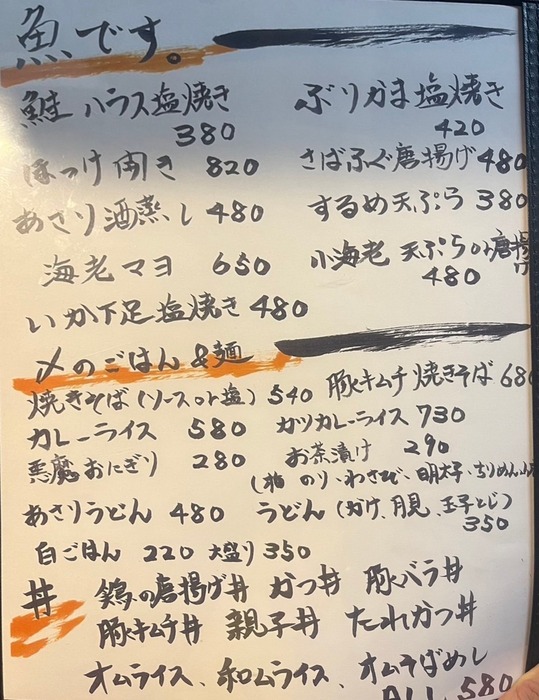 魚です。
鮭ハラス塩焼き 380 ぶりかま塩焼き 420
ほっけ開き 820 さばふぐ唐揚げ 480
あさり酒蒸し 480 するめ天ぷら 380
海老マヨ 650 小海老 天ぷらor唐揚げ 480
いか下足塩焼き 480
〆のごはん&麺
焼きそば(ソースor塩) 540 豚キムチ焼きそば 680
カレーライス 580 カツカレーライス 730
悪魔おにぎり 280 お茶漬け 290
(梅 のり・わさび、明太子、ちりめん
あさりうどん 480 うどん(かけ、月見、玉子とじ) 350
白ごはん 220 大盛り 350
丼 鶏の唐揚げ丼 かつ丼 豚バラ丼
豚キムチ丼 親子丼 たれかつ丼
オムライス、和ムライス、オムそばめし
ALL 580